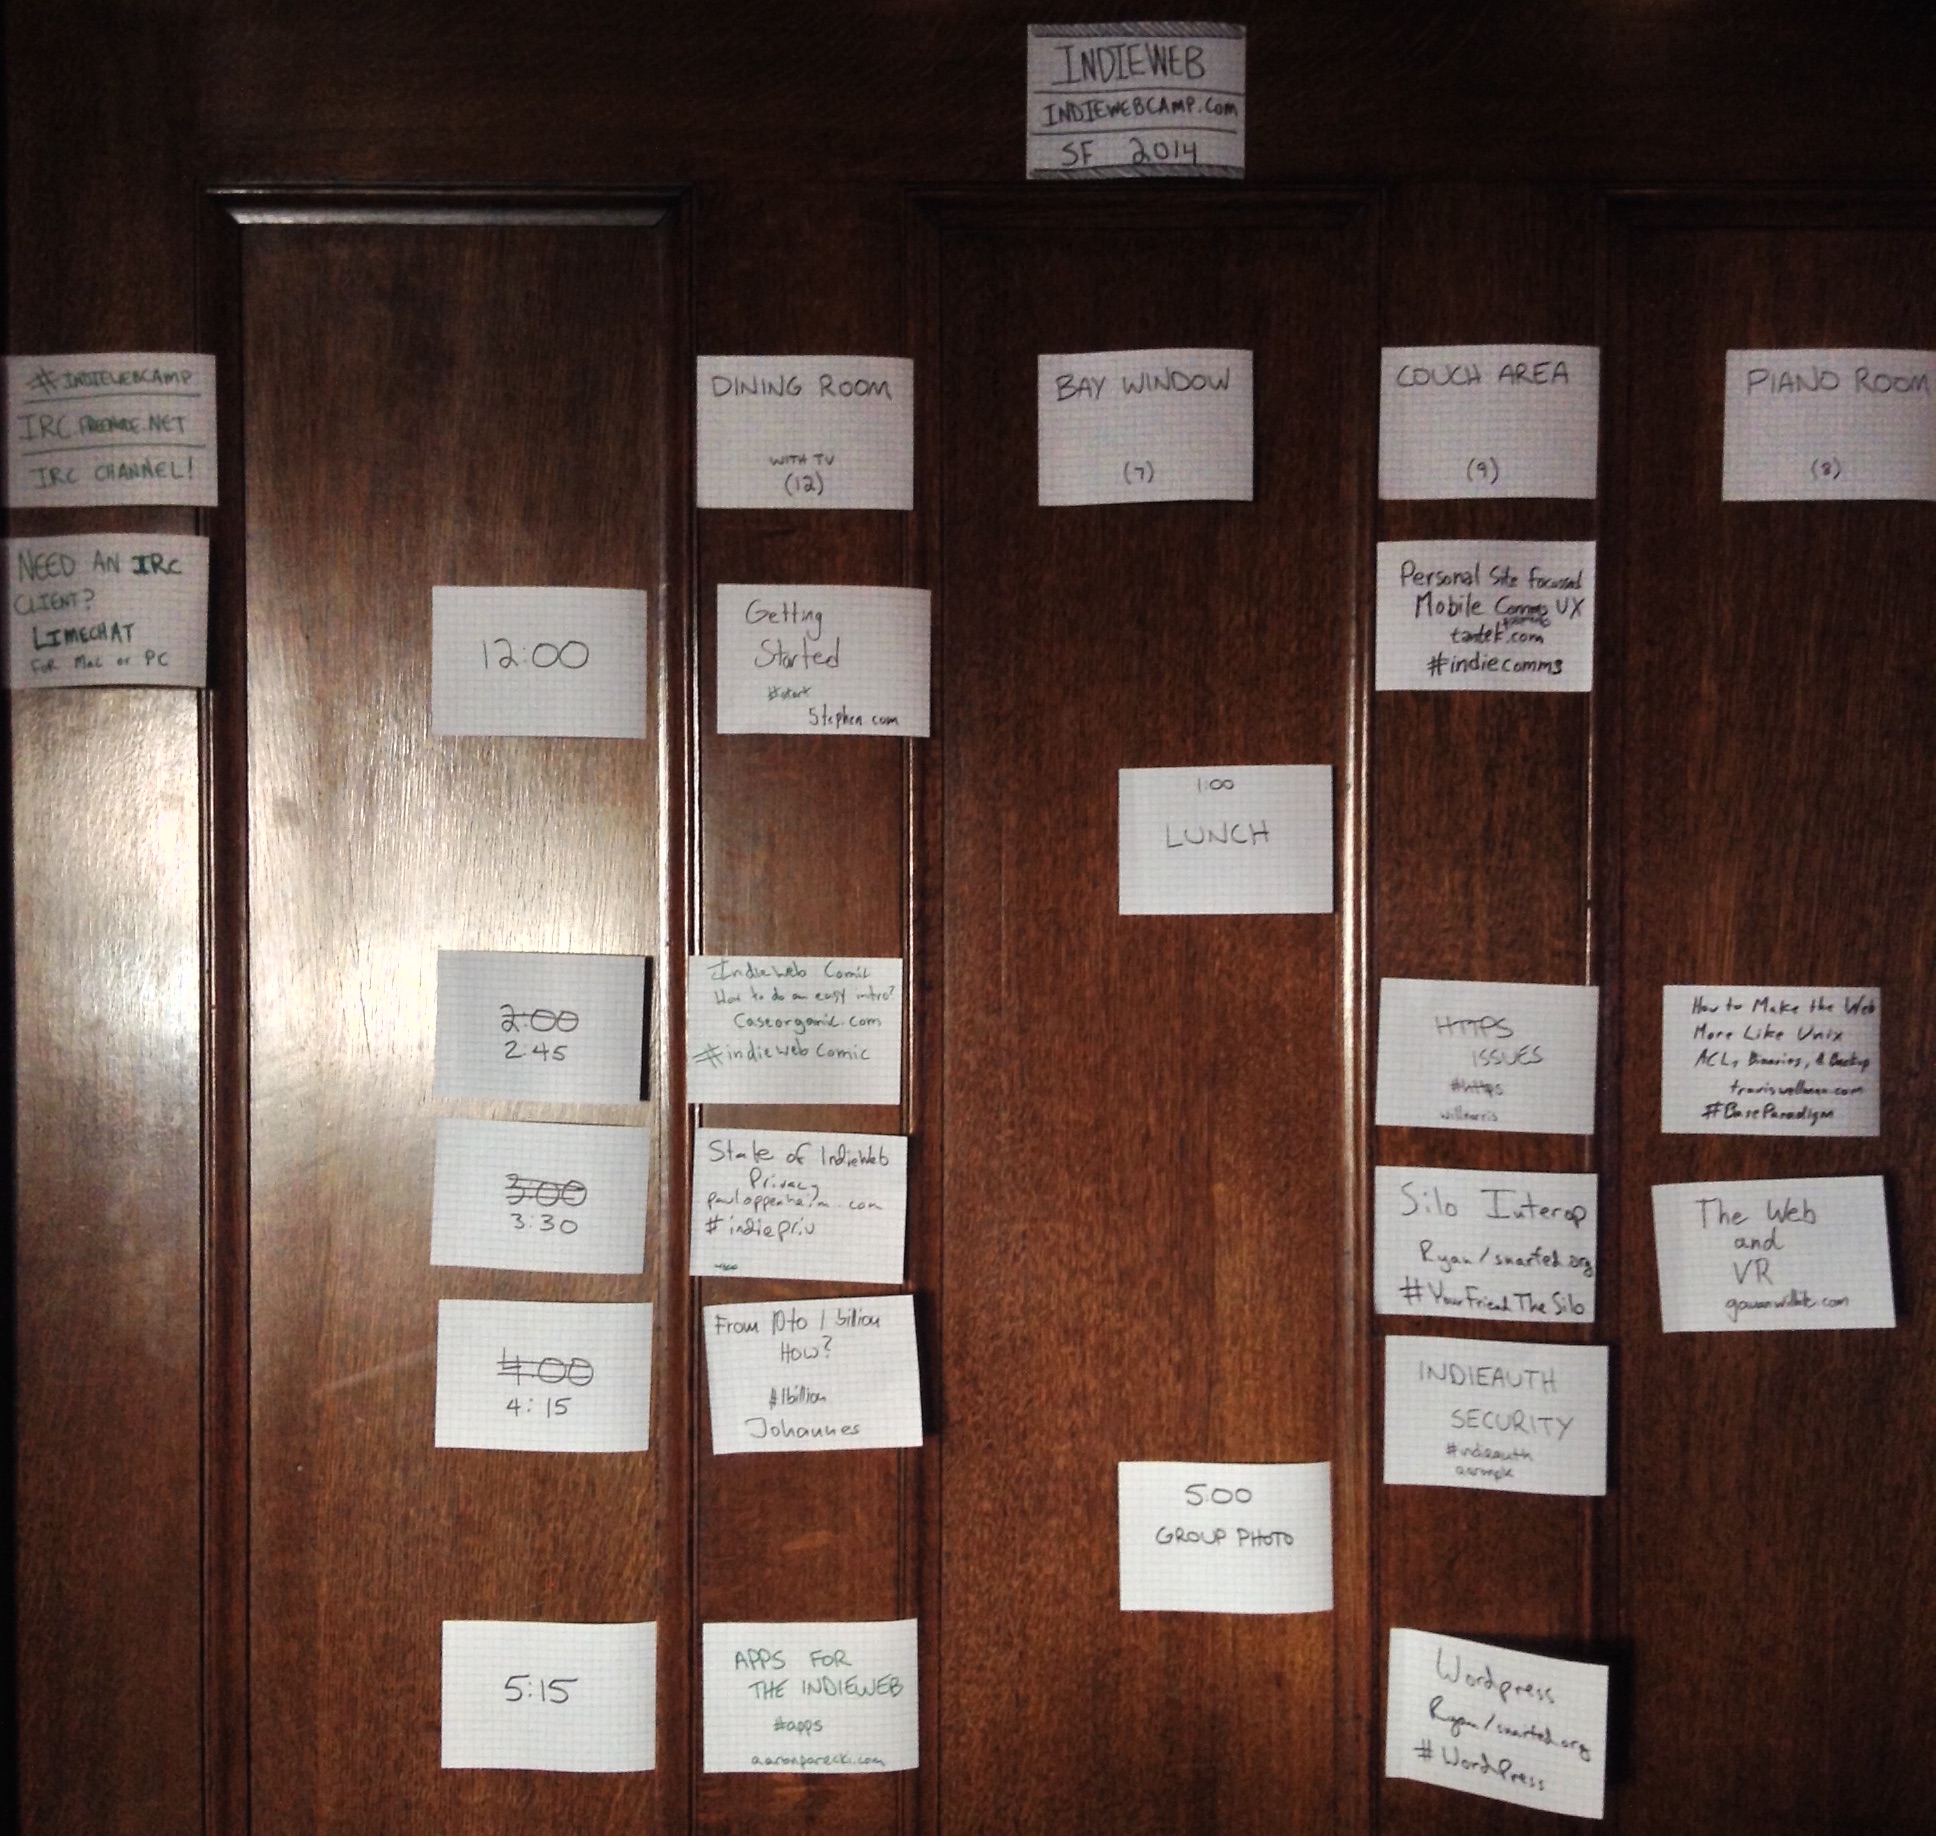 INDIEWEB
INDIEWEBCAMP.COM
SF 2014
#INDIEWEBCAMP
IRC.FREENODE.NET
IRC CHANNEL!
NEED AN IRC
CLIENT?
LIMECHAT
FOR MAC OR PC
DINING ROOM
WITH TV
(12)
BAY WINDOW
(7)
COUCH AREA
(9)
PIANO ROOM
(8)
12:00
Getting
Started
#start
Stephen.com
Personal Site focussed
Mobile Comms UX
tantek.com
#indiecomms
1:00
LUNCH
2:00
2:45
IndieWeb Comic
How to do an easy intro?
Caseorganic.com
#indiewebComic
HTTPS
ISSUES
#https
willnorris
How to Make the Web
More Like Unix
ACL, Binaries, & Backup
traviswellman.com
#BaseParadigm
3:00
3:30
State of IndieWeb
Privacy
pauloppenheim.com
#indiepriv
Silo Interop
Ryan/snarfed.org
#YourFriendTheSilo
The Web
and
VR
4:00
4:15
From 10 to 1 billion
How?
#1billion
Johannes
INDIEAUTH
SECURITY
#indieauth
aaronpk
5:00
GROUP PHOTO
5:15
APPS FOR
THE INDIEWEB
#apps
aaronparecki.com
Wordpress
Ryan/snarfed.org
#WordPress